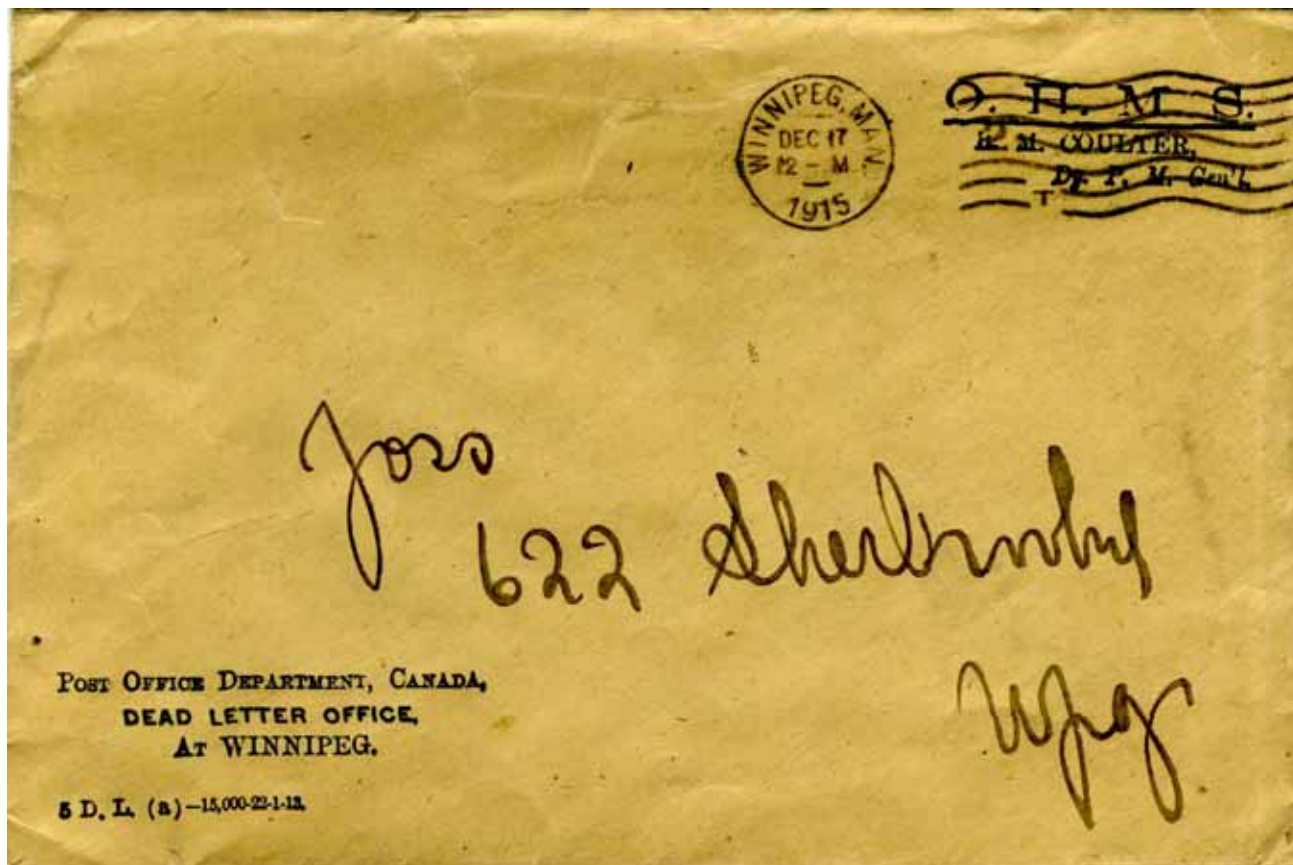 WINNIPEG, MAN.
DEC 17
12 - M
1915
O. H. M. S.
R. M. COULTER,
Dy. P. M. Gen'l.
T
Joss
622 Sherbrooke
Wpg.
POST OFFICE DEPARTMENT, CANADA,
DEAD LETTER OFFICE,
AT WINNIPEG.
5 D. L. (a)—15,000-22-1-13.